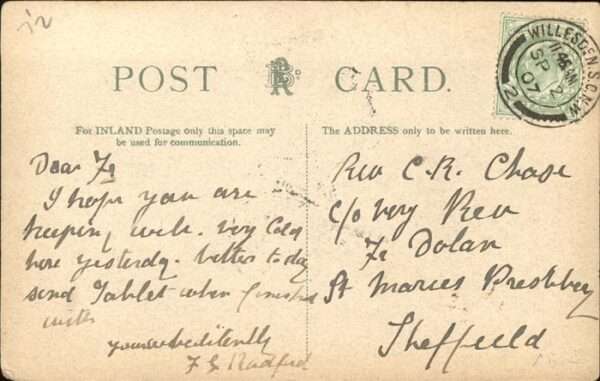 1/2
POST CARD.
WILLESDEN.S.O.N.W.
SP 2
07
2
For INLAND Postage only this space may
be used for communication.
The ADDRESS only to be written here.
Dear Fr
I hope you are
keeping well. Very Cold
here yesterday. better today
send Tablet when finished
with
yours obediently
Radford
Rev C.R. Chase
c/o Very Rev
Fr Dolan
St Maries Presbbery
Sheffield